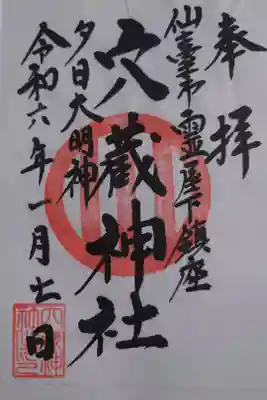 奉拝
仙臺市霊屋下鎮座
穴蔵神社
夕日大明神
令和六年一月七日